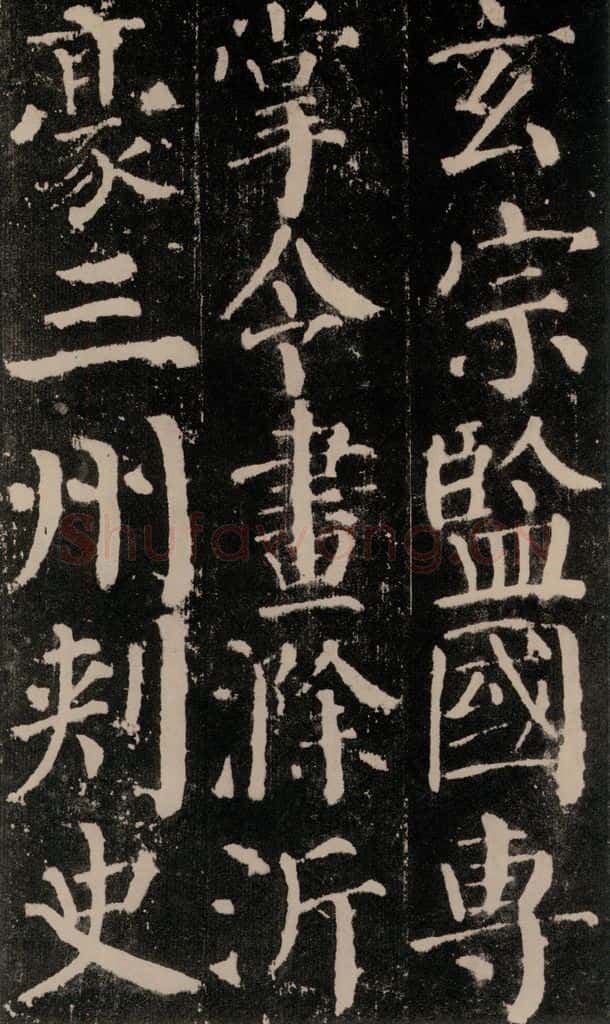 玄宗監國專
掌令畫滁沂
豪三州刺史
Shufawang.CN